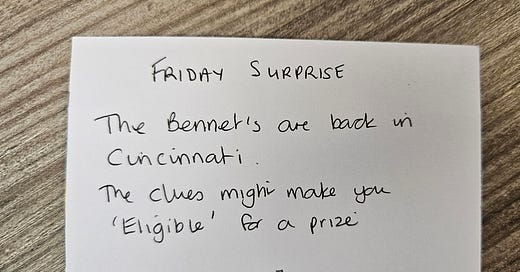 FRIDAY SURPRISE
The Bennet's are back in
Cincinnati.
The clues might make you
'Eligible' for a prize